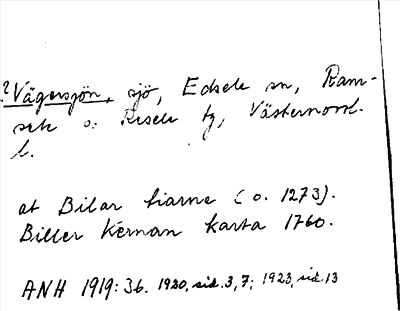 ?Vägersjön, sjö, Edsele sn, Ram-
sele o. Resele tg, Västernorrl.
l.
at Bilar tiarne (o. 1273).
Biller Kërnan karta 1760.
ANH 1919:36. 1920, sid. 3, 7; 1923, sid. 13